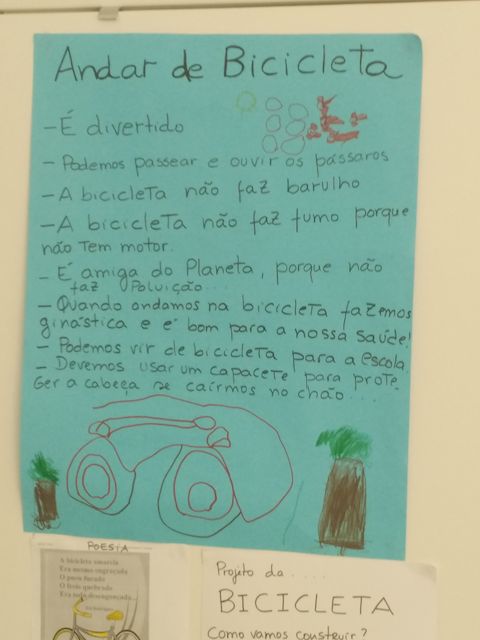 Andar de Bicicleta
- É divertido
- Podemos passear e ouvir os pássaros
- A bicicleta não faz barulho
- A bicicleta não faz fumo porque
não tem motor.
- É amiga do Planeta, porque não
faz Poluição...
- Quando andamos na bicicleta fazemos
ginástica e é bom para a nossa saúde!
- Podemos vir de bicicleta para a escola.
- Devemos usar um capacete para prote-
ger a cabeça se caírmos no chão...
POESIA
A bicicleta amarela
Era mesmo engraçada
O pneu furado
O freio quebrado
Era toda desengonçada...
Projeto da ....
BICICLETA
Como vamos construir?